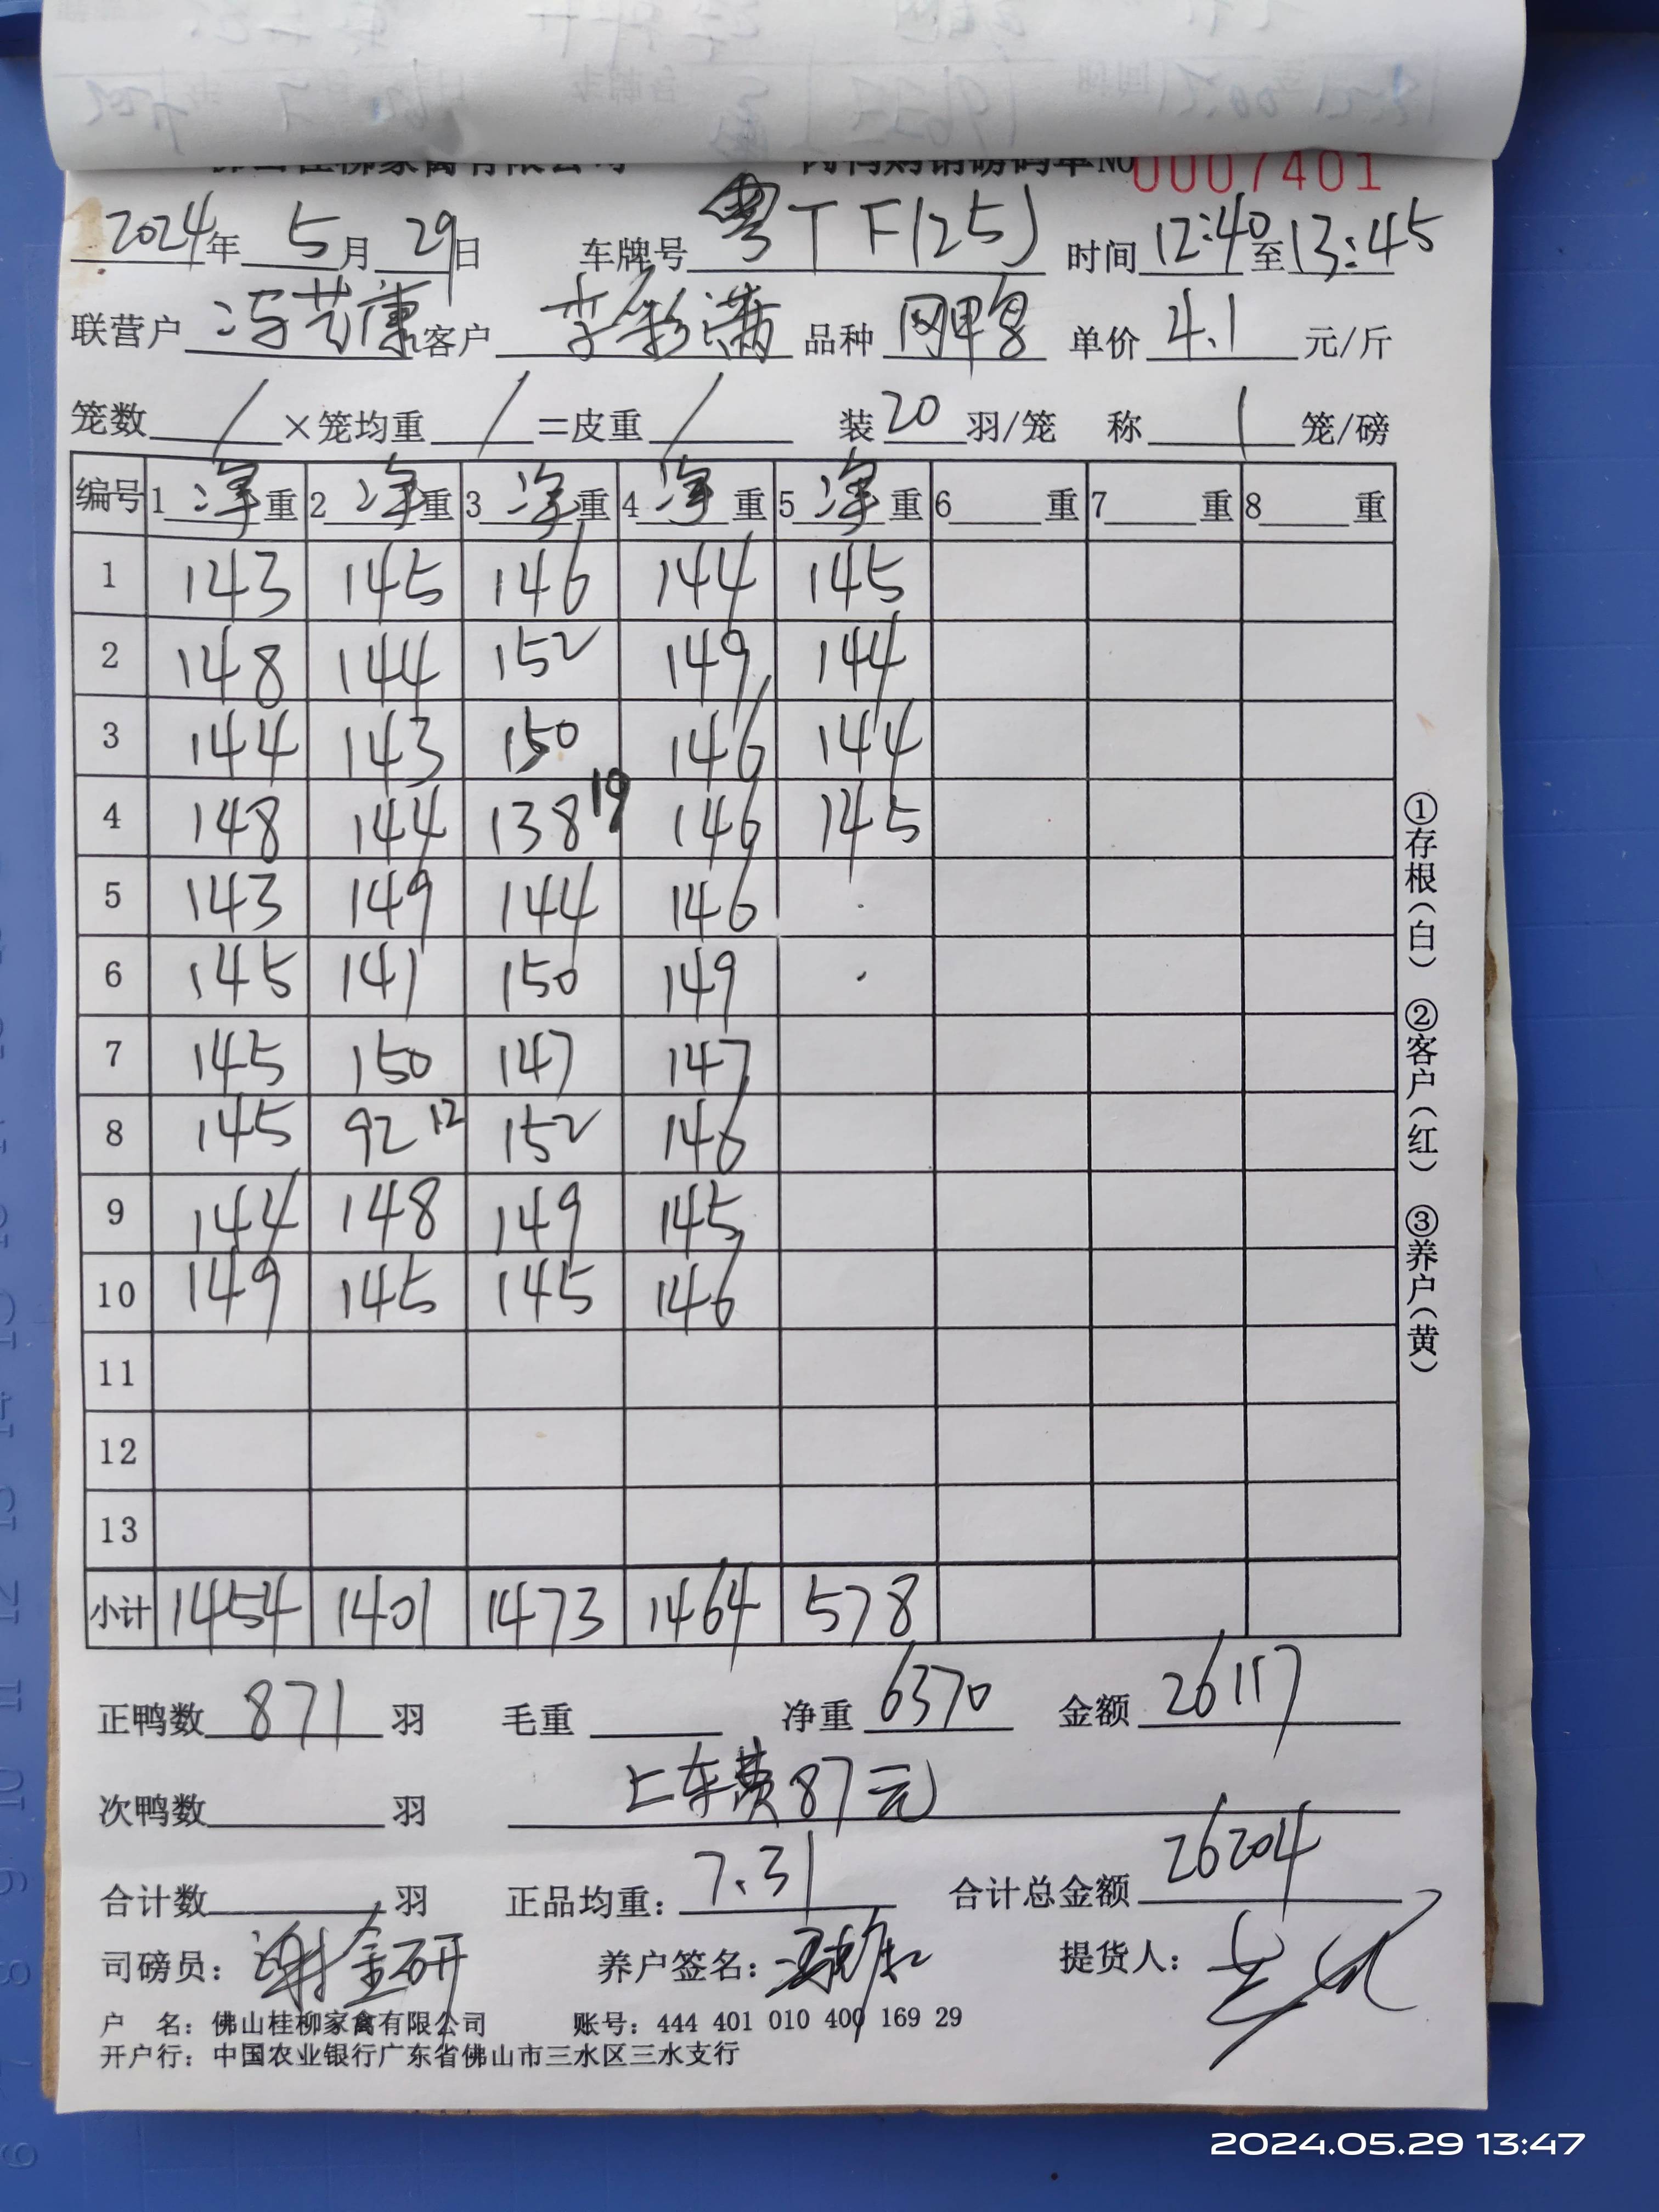 佛山桂柳家禽有限公司 肉鸭购销磅码单NO 0007401
2024年 5月 29日 车牌号 粤TF1251 时间 12:40至13:45
联营户 冯艺康 客户 李彩满 品种 网鸭 单价 4.1 元/斤
笼数 / ×笼均重 / =皮重 / 装20羽/笼 称 1 笼/磅
编号 1净重 2净重 3净重 4净重 5净重 6 重 7 重 8 重
1 143 145 146 144 145
2 148 144 152 149 144
3 144 143 150 146 144
4 148 144 138 19 146 145
5 143 149 144 146
6 145 141 150 149
7 145 150 147 147
8 145 92 12 152 146
9 144 148 149 145
10 149 145 145 146
11
12
13
小计 1454 1401 1473 1464 578
①存根(白) ②客户(红) ③养户(黄)
正鸭数 871 羽 毛重 净重 6370 金额 26117
次鸭数 羽 上车费87元
合计数 羽 正品均重: 7.31 合计总金额 26204
司磅员: 谢金研 养户签名: 提货人:
户 名: 佛山桂柳家禽有限公司 账号: 444 401 010 400 169 29
开户行: 中国农业银行广东省佛山市三水区三水支行
2024.05.29 13:47